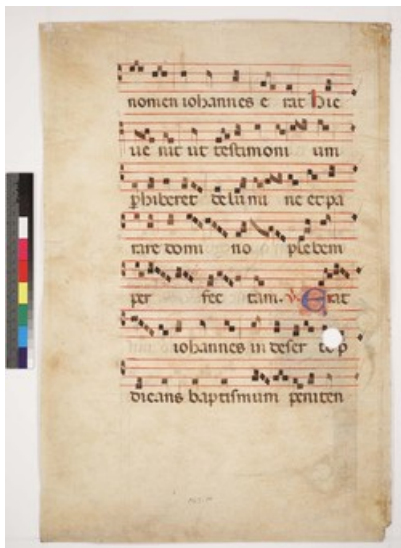 nomen iohannes e rat hic
ue nit ut testimoni um
phiberet de lumi ne et pa
rare domi no plebem
per fec tam. v. Erat
iohannes in deser to p
dicans baptismum peniten